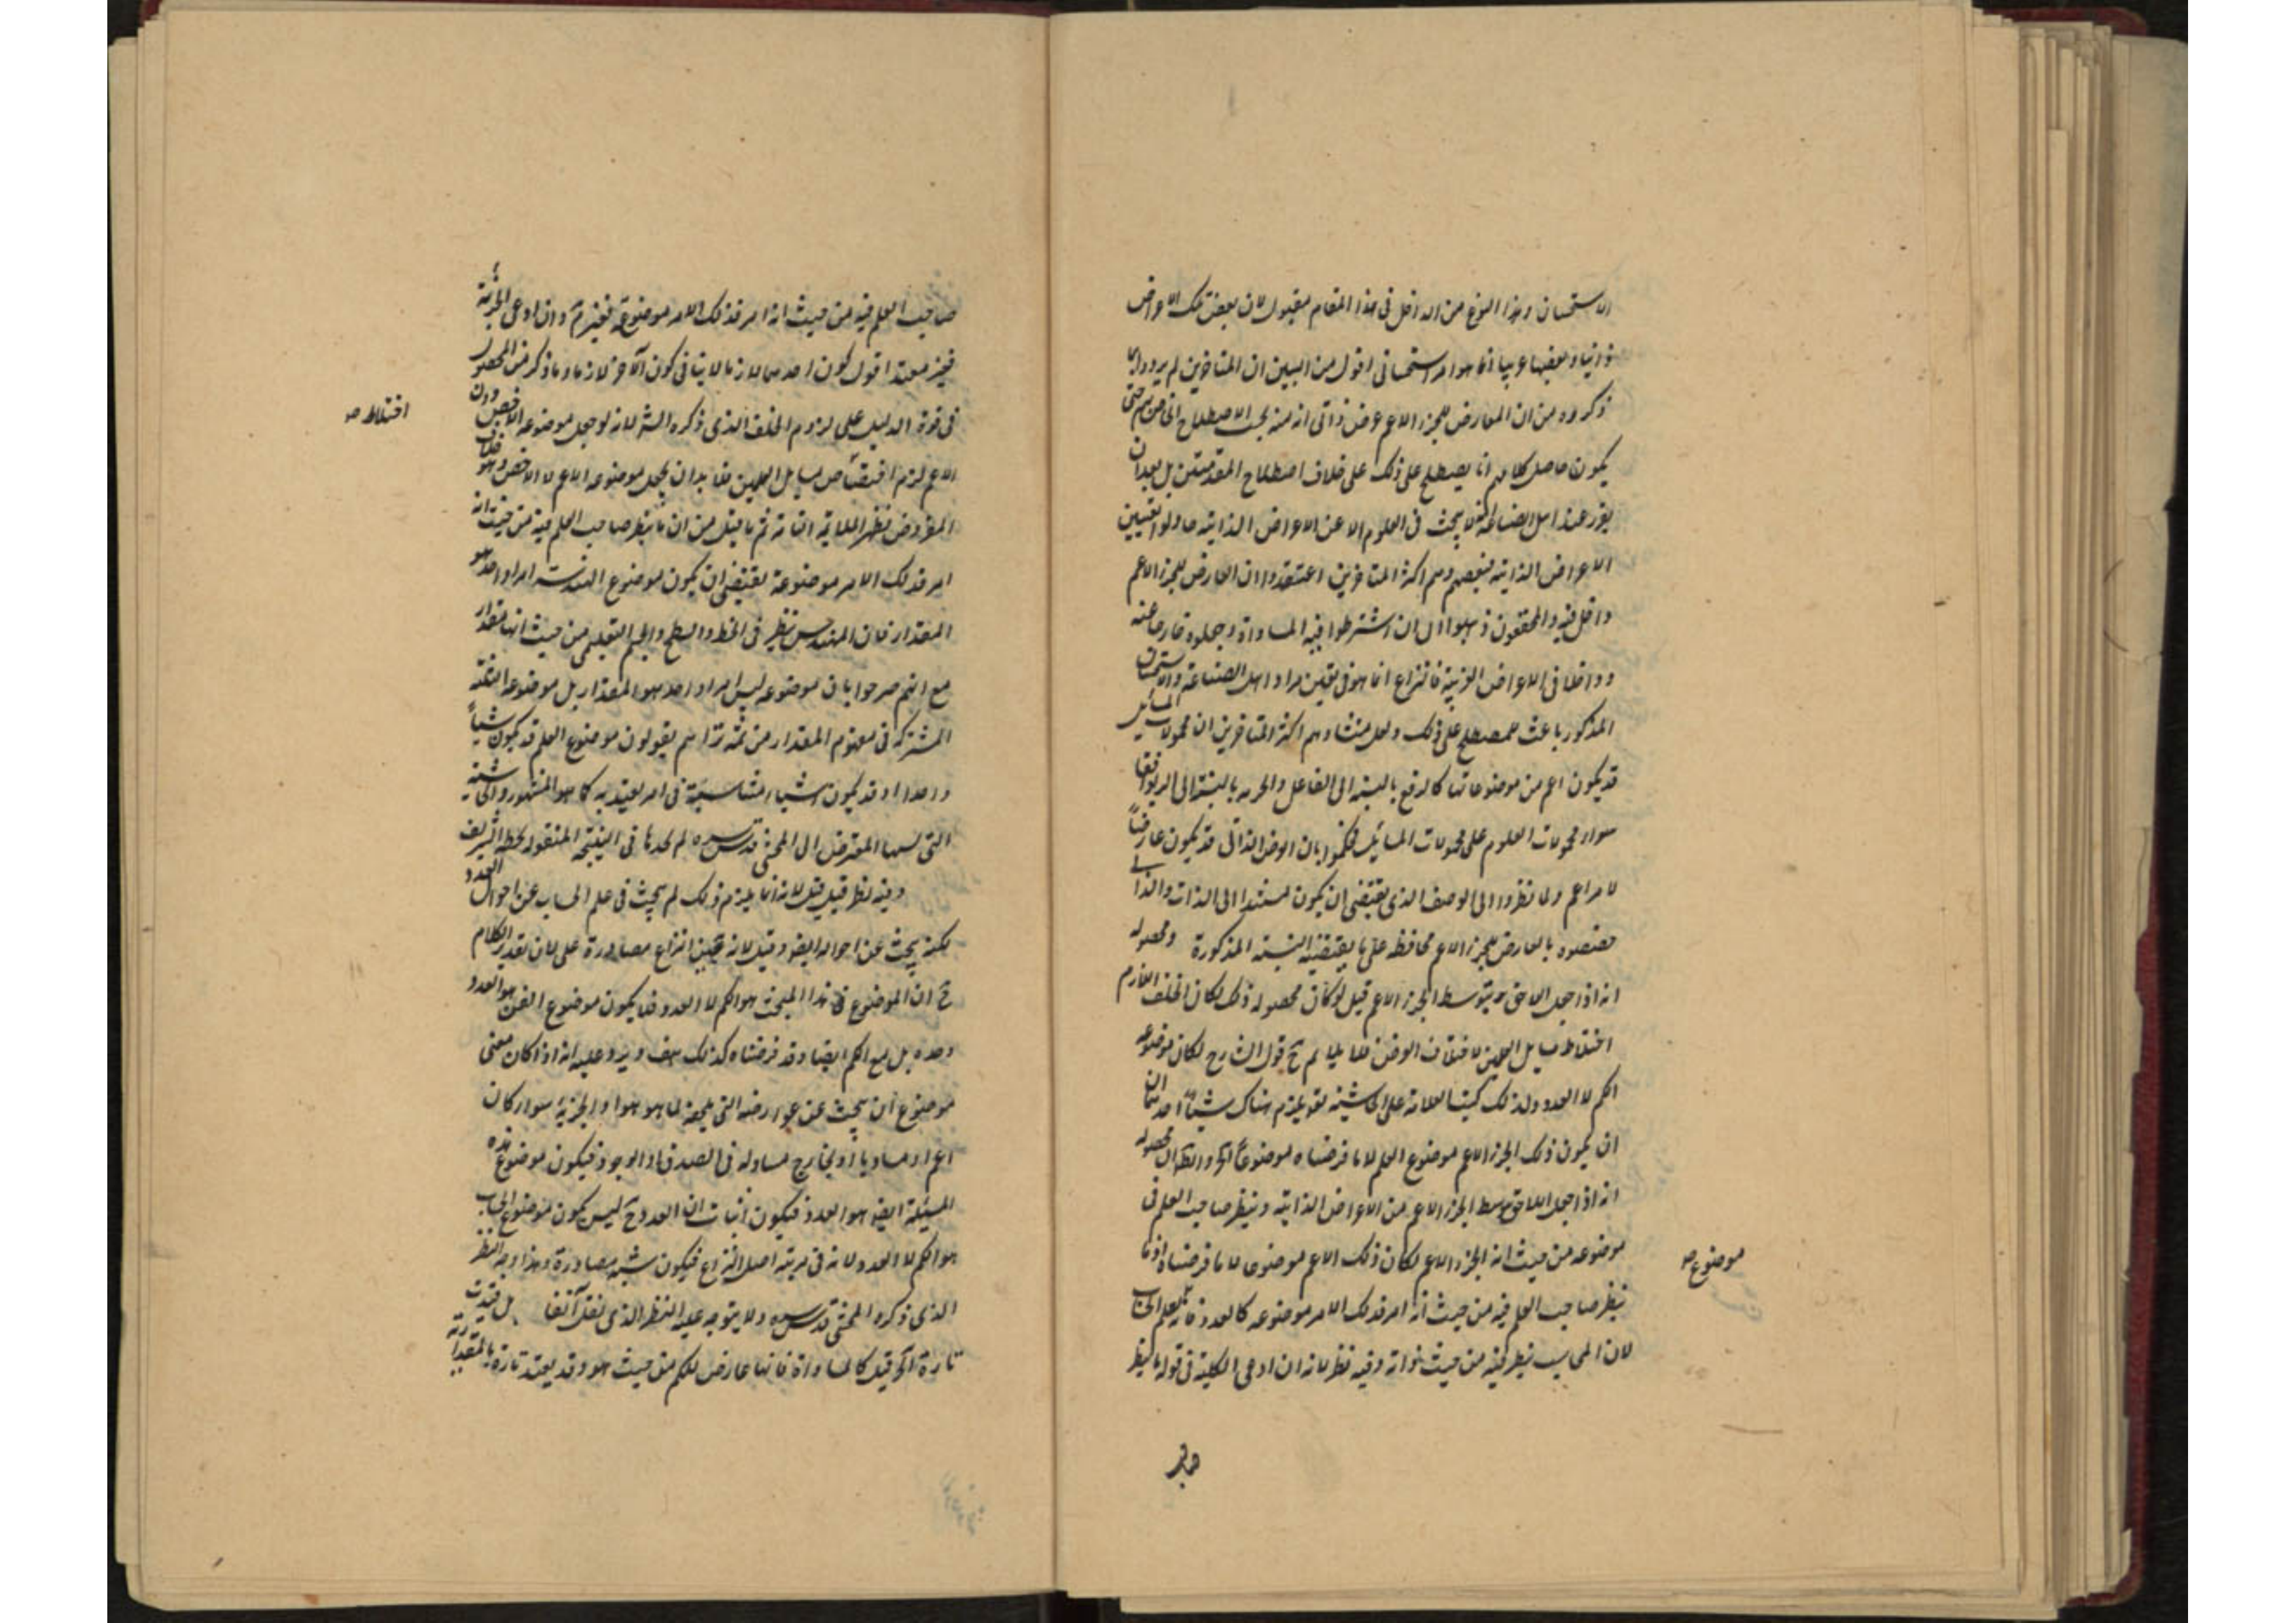 الاستحسان وهذا النوع من الدخل في هذا المقام مقبول لان بعض تلك الاعراض
ذاتيا وبعضها غريبا انما هو امر استحساني اقول من البين ان المتاخرين لم يريدوا بما
ذكروه من ان العارض للجزء الاعم عرض ذاتي انه منه بحسب الاصطلاح حتى
يكون حاصل كلامهم انا نصطلح على ذلك على خلاف اصطلاح المتقدمين بل بعد ان
تقرر عند اهل الصناعة انه لا يبحث في العلوم الا عن الاعراض الذاتية حاولوا تعيين
الاعراض الذاتية فبعضهم وهم اكثر المتاخرين اعتقدوا ان العارض للجزء الاعم
داخل فيه والمحققون ذهبوا الى ان اشترطوا فيه المساواة وجعلوه خارجا عنه
وداخلا في الاعراض الغريبة فالنزاع انما هو في تعيين مراد اهل الصناعة والاستحسان
المذكور باعث للمصطلح على ذلك ولعل منشاء وهم اكثر المتاخرين ان محمولات المسائل
قد يكون اعم من موضوعاتها كالرفع بالنسبة الى الفاعل والحرمة بالنسبة الى الربوا
سواء محمولات العلوم على محمولات المسائل فحكموا بان العرض الذاتي قد يكون عارضاً
لامر اعم ولما نظروا الى الوصف الذي يقتضي ان يكون مستندا الى الذات
خصصوه بالعارض للجزء الاعم محافظة على ما يقتضيه النسبة المذكورة ومحصوله
انه اذا جعل اللاحق بتوسط الجزء الاعم قيل لو كان محصوله ذلك لكان الخلف اللازم
اختلاط مسايل العلمين لا خلاف الفرض فلا يلايم ح قول الشارح لكان موضوعه
الكم لا العدد ولذلك كتب العلامة على الحاشية نعم يلزم هناك شيئان احدهما
ان يكون ذلك الجزء الاعم موضوع العلم لا ما فرضناه موضوعاً له محصوله
انه اذا جعل اللاحق بتوسط الجزء الاعم من الاعراض الذاتية وينظر صاحب العلم في
موضوعه من حيث انه الجزء الاعم لكان ذلك الاعم موضوعا لا ما فرضناه اذ ما
موضوع صح
ينظر صاحب العلم فيه من حيث انه امر فذلك الامر موضوعه كالعدد لعلم الحساب
لان المحاسب ينظر فيه من حيث ذواته وفيه نظر لانه ان ادعى الكلية في قوله ما ينظر
صاحب
صاحب العلم فيه من حيث انه امر فذلك الامر موضوعه فغير تم وان ادعى الجزئية
فغير مفيد اقول كون احدهما لازما لا ينافي كون الآخر لازما وما ذكر من المحصول
في قوة الدليل على لزوم الخلف الذي ذكره الشر لانه لو جعل موضوعه الاخص دون
اختلاط صح
الاعم لزم مسايل العلمين فلا بد ان يجعل موضوعه الاعم لا الاخص وهو خلاف
المفروض فنظر العلامة ثم ما قيل من ان ما ينظر صاحب العلم فيه من حيث انه
امر فذلك الامر موضوعه يقتضي ان يكون موضوع الهندسة امرا واحدا هو
المقدار فان المهندس ينظر في الخط والسطح والجسم التعليمي من حيث انها مقدار
مع انهم صرحوا بان موضوعه ليس امرا واحدا هو المقدار بل موضوعه الثلثة
المشتركة في مفهوم المقدار من ثمه تراهم يقولون موضوع العلم قد يكون شيئاً
واحدا وقد يكون اشياء متناسبة في امر يعتد به كما هو المشهور والحاشية
التي نسبها المعترض الى المحشي قدس سره لم نجدها في النسخة المنقولة بخطه الشريف
وفيه نظر قيل قيل لانه انما يلزم ذلك لو لم يبحث في علم الحساب عن احوال العدد
لكنه يبحث عن احواله ايضا وقيل لانه عين النزاع مصادرة على لان تقدير الكلام
ح ان الموضوع في هذا المبحث هو الكم لا العدد فلا يكون موضوع الفن هو العدد
وحده بل مع الكم ايضا وقد فرضناه كذلك هف ويرد عليه انه اذا كان معنى
موضوع ان يبحث عن عوارضه التي تلحقه لما هو هو او لجزئه سواء كان
اعم او مساويا او لخارج مساو له في الصدق او الوجود فيكون موضوع هذه
المسئلة ايضا هو العدد فيكون اثبات ان العدد ح ليس يكون موضوع الحساب
هو الكم لا العدد لانه في مرتبة اصل النزاع فيكون شبه مصادرة وهذا وجه النظر
الذي ذكره المحشي قدس سره ولا يتوجه عليه النظر الذي نقل آنفا بل قيدت
تارة اخر قيل كالمساواة فانها عارض للكم من حيث هو وقد يعتد تارة بالمقدارية